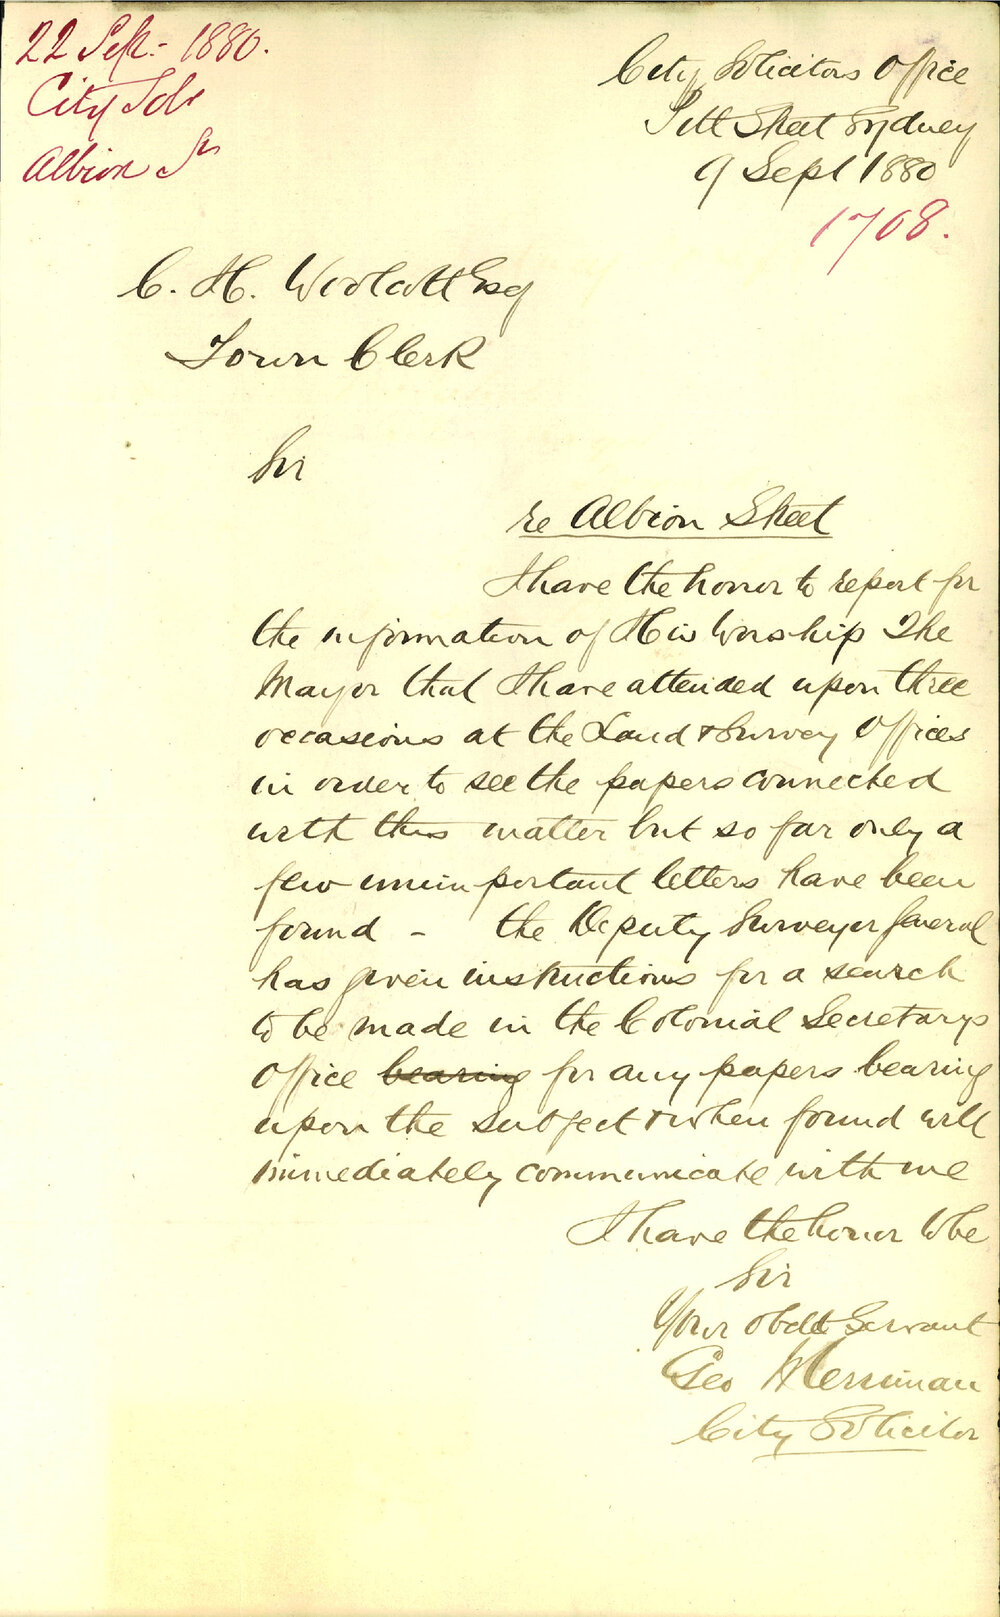 22 Sept. 1880.
City Solr
Albion St
City Solicitors Office
Pitt Street Sydney
9 Sept 1880
1708.
C. H. Woolcott Esq
Town Clerk
Sir
re Albion Street
I have the honor to report for
the information of His Worship The
Mayor that I have attended upon three
occasions at the Land & Survey Offices
in order to see the papers connected
with this matter but so far only a
few unimportant letters have been
found - the Deputy Surveyor General
has given instructions for a search
to be made in the Colonial Secretarys
Office bearing for any papers bearing
upon the subject & when found will
immediately communicate with me
I have the honor to be
Sir
Your obdt Servant
Geo Merriman
City Solicitor